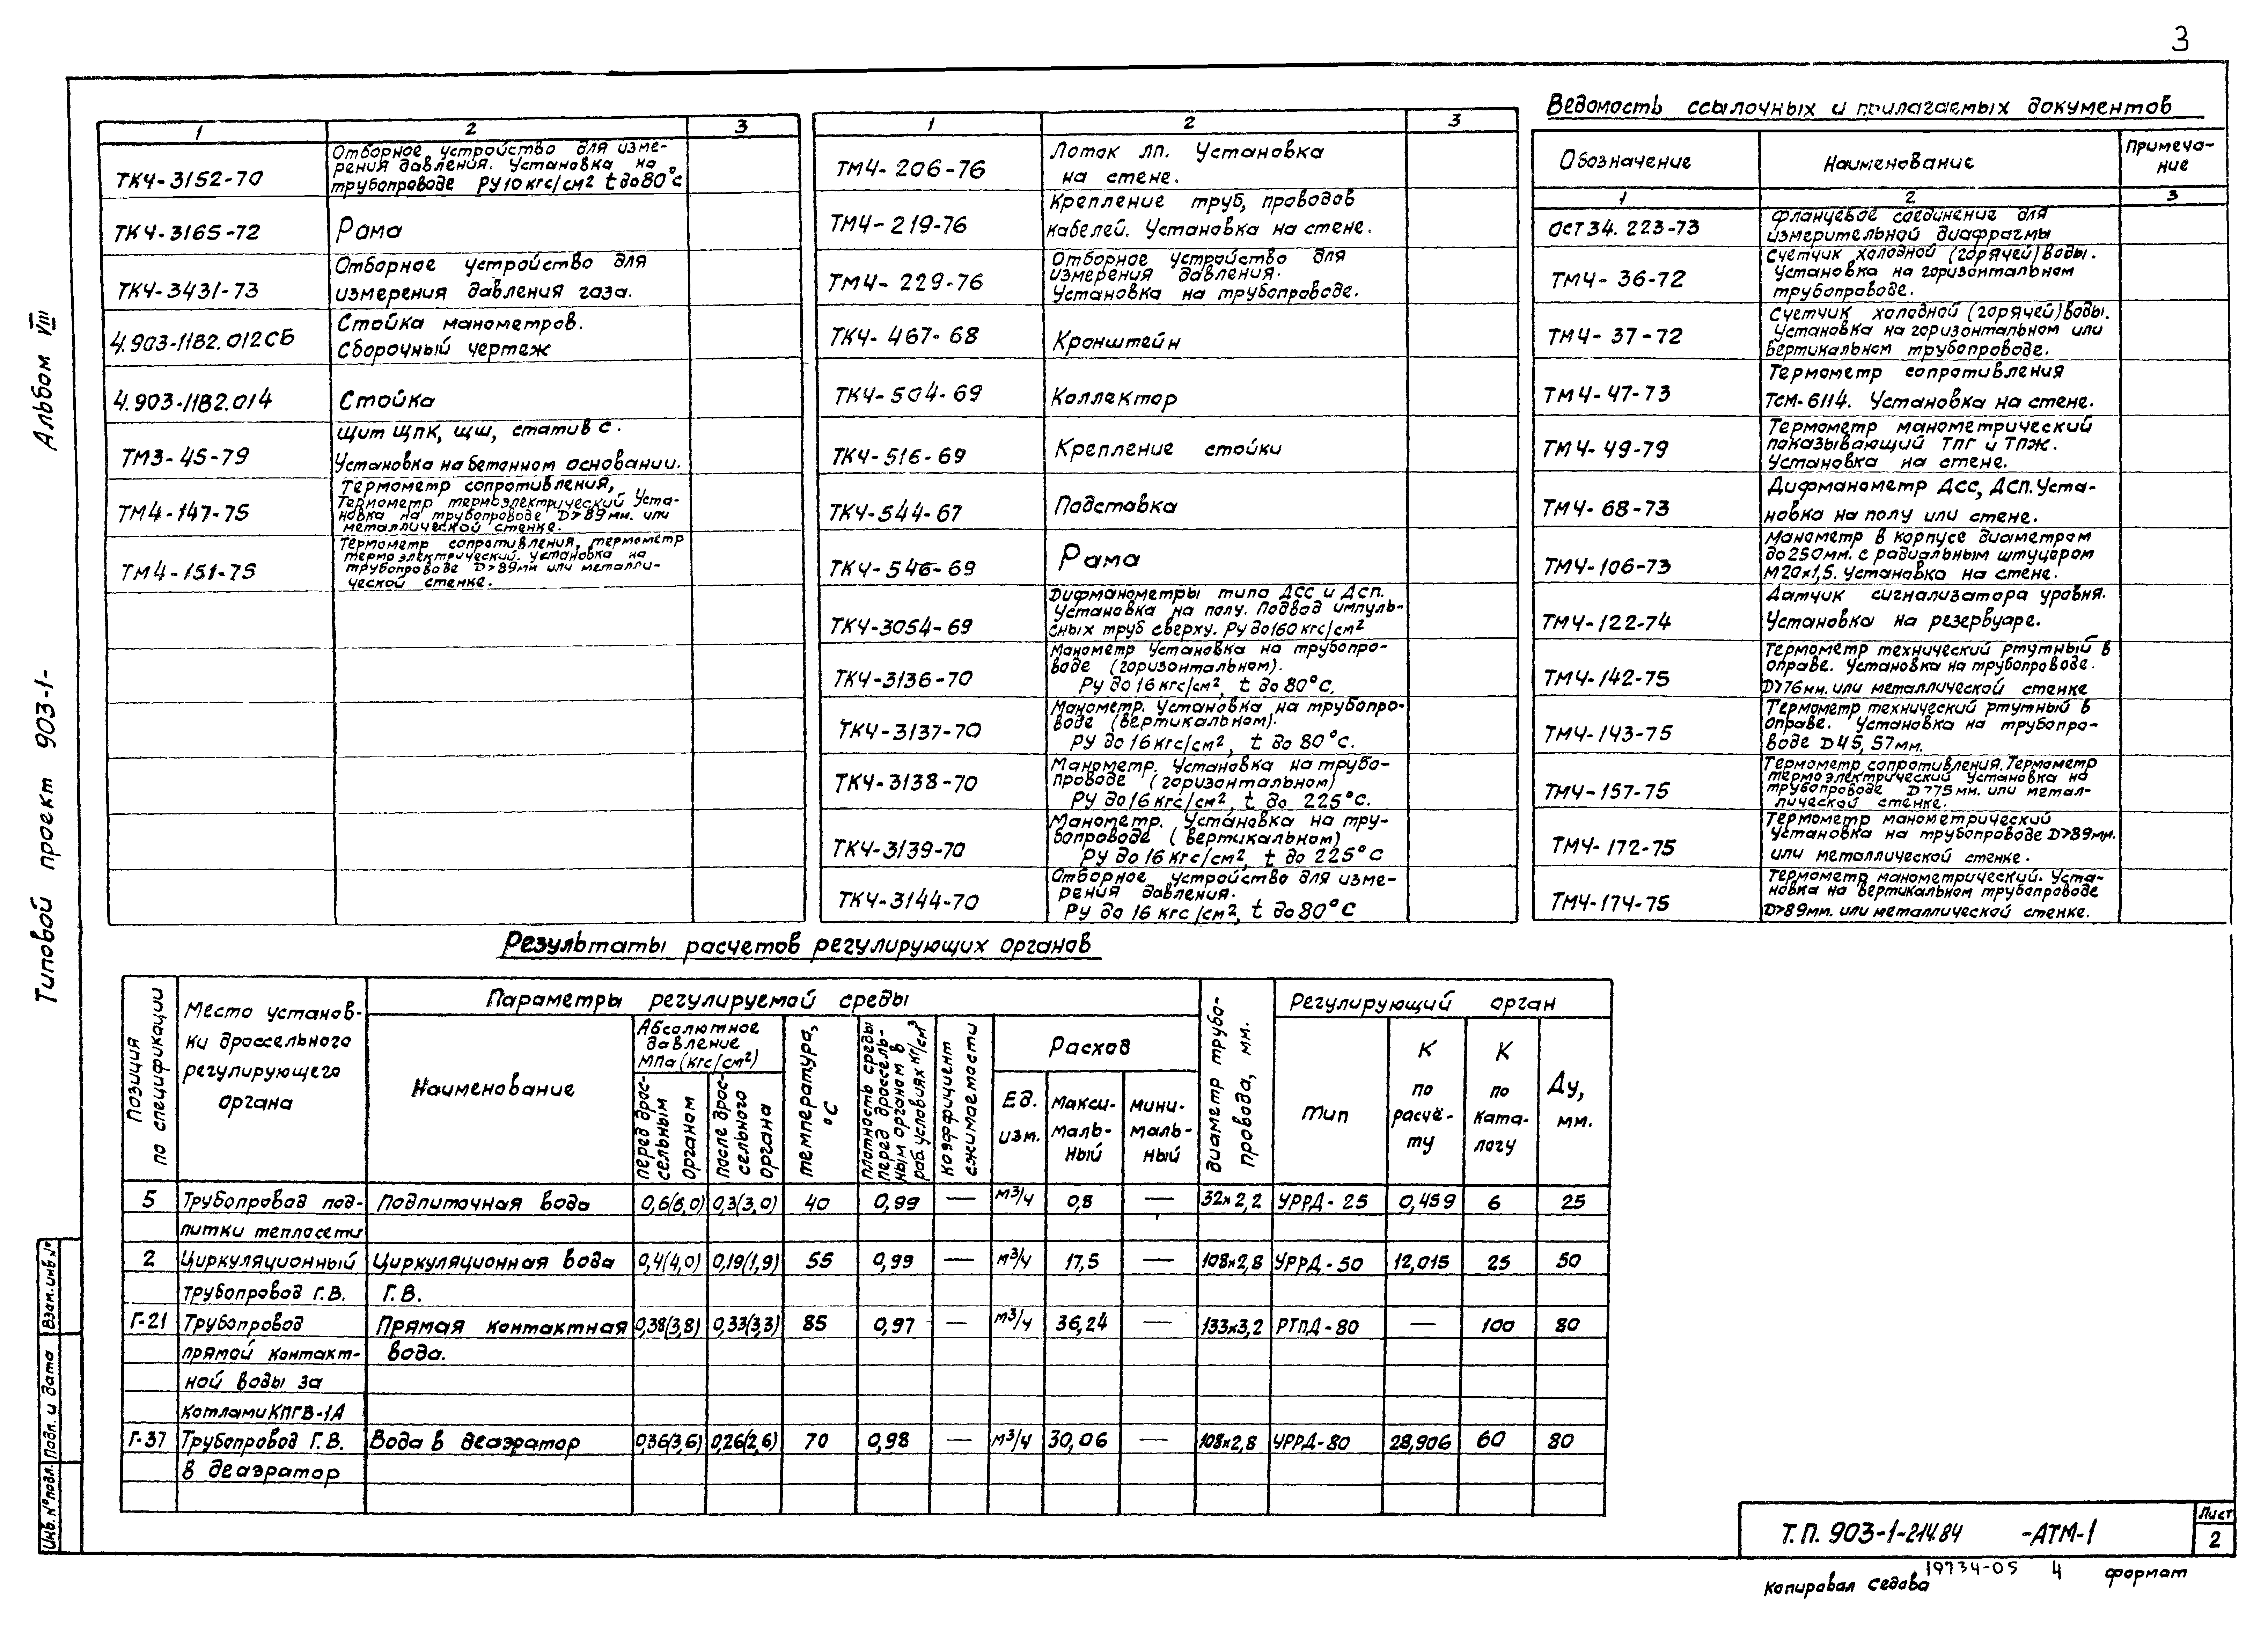 3
Альбом VIII
Типовой проект 903-1-
Взам.инв.№
Подп. и дата
Инв.№подл.
1 2 3
ТК4-3152-70
Отборное устройство для изме-
рения давления. Установка на
трубопроводе Ру 10 кгс/см² t до 80°с
ТК4-3165-72
Рама
ТК4-3431-73
Отборное устройство для
измерения давления газа.
4.903-11В2.012СБ
Стойка манометров.
Сборочный чертеж
4.903-11В2.014
Стойка
ТМ3-45-79
Щит ЩПК, ЩШ, статив с.
Установка на бетонном основании.
ТМ4-147-75
Термометр сопротивления,
Термометр термоэлектрический Уста-
новка на трубопроводе D>89мм. или
металлической стенке.
ТМ4-151-75
Термометр сопротивления, термометр
термоэлектрический. Установка на
трубопроводе D>89мм или металли-
ческой стенке.
1 2 3
ТМ4-206-76
Лоток лп. Установка
на стене.
ТМ4-219-76
Крепление труб, проводов
кабелей. Установка на стене.
ТМ4-229-76
Отборное устройство для
измерения давления.
Установка на трубопроводе.
ТК4-467-68
Кронштейн
ТК4-504-69
Коллектор
ТК4-516-69
Крепление стойки
ТК4-544-67
Подставка
ТК4-546-69
Рама
ТК4-3054-69
Дифманометры типа ДСС и ДСП.
Установка на полу. Подвод импуль-
сных труб сверху. Ру до 160 кгс/см²
ТК4-3136-70
Манометр Установка на трубопро-
воде (горизонтальном).
Ру до 16 кгс/см², t до 80°С.
ТК4-3137-70
Манометр. Установка на трубопро-
воде (вертикальном).
Ру до 16 кгс/см², t до 80°с.
ТК4-3138-70
Манометр. Установка на трубо-
проводе (горизонтальном)
Ру до 16 кгс/см², t до 225°с.
ТК4-3139-70
Манометр. Установка на тру-
бопроводе (вертикальном)
Ру до 16 кгс/см², t до 225°С
ТК4-3144-70
Отборное устройство для изме-
рения давления.
Ру до 16 кгс/см², t до 80°С
Ведомость ссылочных и прилагаемых документов
Обозначение Наименование Примеча-
ние
1 2 3
ОСТ 34. 223-73
Фланцевое соединение для
измерительной диафрагмы
ТМ4-36-72
Счетчик холодной (горячей) воды.
Установка на горизонтальном
трубопроводе.
ТМ4-37-72
Счетчик холодной (горячей) воды.
Установка на горизонтальном или
вертикальном трубопроводе.
ТМ4-47-73
Термометр сопротивления
Тсм-6114. Установка на стене.
ТМ4-49-79
Термометр манометрический
показывающий ТПГ и ТПЖ.
Установка на стене.
ТМ4-68-73
Дифманометр ДСС, ДСП. Уста-
новка на полу или стене.
ТМ4-106-73
Манометр в корпусе диаметром
до 250мм. с радиальным штуцером
М20х1,5. Установка на стене.
ТМ4-122-74
Датчик сигнализатора уровня.
Установка на резервуаре.
ТМ4-142-75
Термометр технический ртутный в
оправе. Установка на трубопроводе.
D>76мм. или металлической стенке
ТМ4-143-75
Термометр технический ртутный в
оправе. Установка на трубопро-
воде D45, 57мм.
ТМ4-157-75
Термометр сопротивления. Термометр
термоэлектрический Установка на
трубопроводе D>75мм. или метал-
лической стенке.
ТМ4-172-75
Термометр манометрический
Установка на трубопроводе D>89мм.
или металлической стенке.
ТМ4-174-75
Термометр манометрический. Уста-
новка на вертикальном трубопроводе
D>89мм. или металлической стенке.
Результаты расчетов регулирующих органов
Позиция
по спецификации
Место установ-
ки дроссельного
регулирующего
органа
Параметры регулируемой среды
Наименование
Абсолютное
давление
МПа (кгс/см²)
перед дрос-
сельным
органом
после дрос-
сельного
органа
температура,
°С
плотность среды
перед дроссель-
ным органом в
раб. условиях кг/см³
коэффициент
сжимаемости
Расход
Ед.
изм.
макси-
маль-
ный
мини-
маль-
ный
диаметр трубо-
провода, мм.
Регулирующий орган
тип
К
по
расчё-
ту
К
по
ката-
логу
Ду,
мм.
5 Трубопровод под- Подпиточная вода 0,6(6,0) 0,3(3,0) 40 0,99 — м³/ч 0,8 — 32х2,2 УРРД-25 0,459 6 25
питки теплосети
2 Циркуляционный Циркуляционная вода 0,4(4,0) 0,19(1,9) 55 0,99 — м³/ч 17,5 — 108х2,8 УРРД-50 12,015 25 50
трубопровод Г.В. Г.В.
Г-21 Трубопровод Прямая контактная 0,38(3,8) 0,33(3,3) 85 0,97 — м³/ч 36,24 — 133х3,2 РТПД-80 — 100 80
прямой контакт- вода.
ной воды за
котлами КПГВ-1А
Г-37 Трубопровод Г.В. Вода в деаэратор 0,36(3,6) 0,26(2,6) 70 0,98 — м³/ч 30,06 — 108х2,8 УРРД-80 28,906 60 80
в деаэратор
Т.П. 903-1-214.84 -АТМ-1
Лист
2
Копировал Седова 19734-05 4 формат